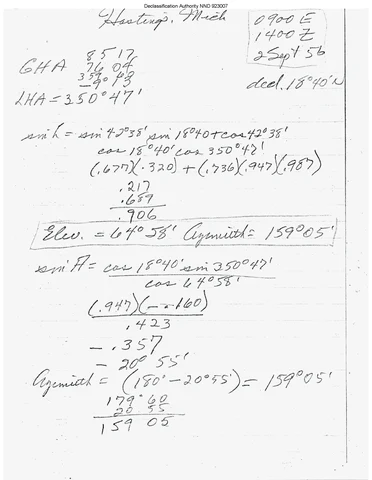 Declassification Authority NND 923007
Hastings, Mich
0900 E
1400 Z
2 Sept 56
decl. 18°40'N
85 17
GHA 76 04
359° 73
-9° 13
LHA = 350°47'
sin h = sin 42°38' sin 18°40 + cos 42°38'
cos 18°40' cos 350°47'
(.677)(.320) + (.736)(.947)(.987)
.217
.687
.906
Elev. = 64°58' Azimuth = 159°05'
sin A = cos 18°40' sin 350°47'
cos 64°58'
(.947)(-.160)
.423
-.357
-20° 55'
Azimuth = (180° - 20°55') = 159°05'
179° 60
20 55
159 05